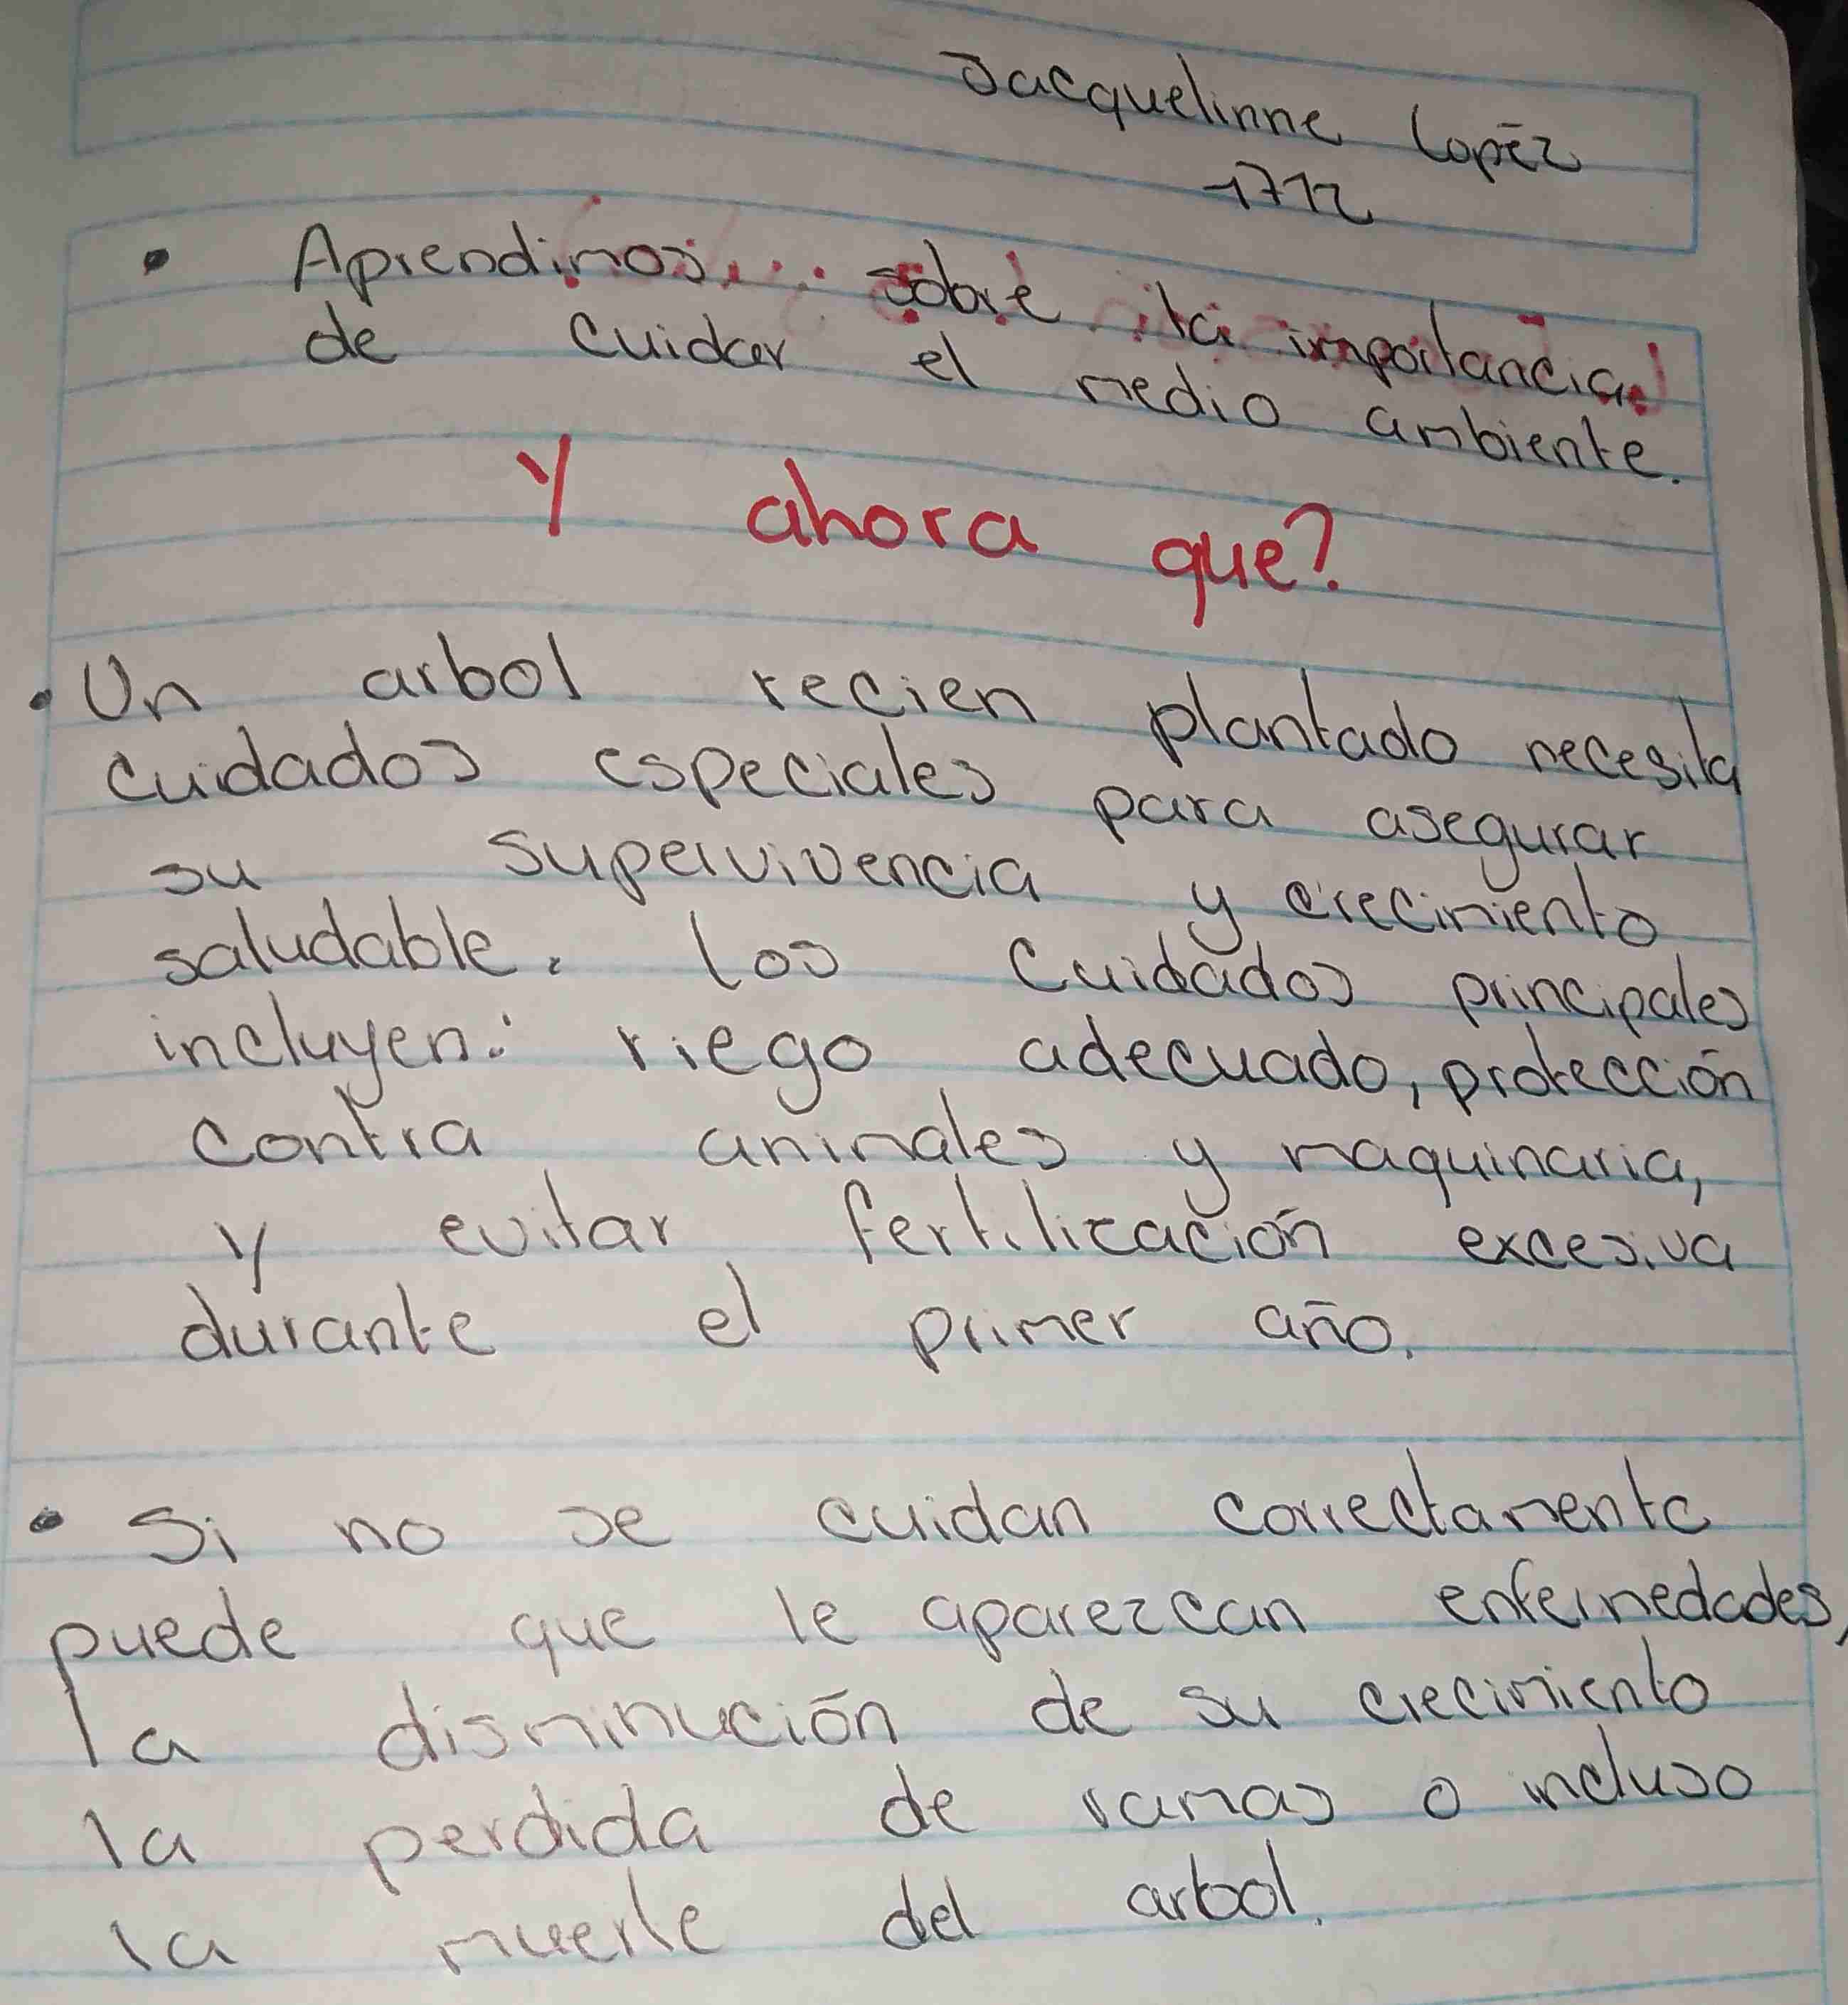 Jacquelinne Lopéz
1712
• Aprendimos sobre la importancia
de cuidar el medio ambiente.
Y ahora que?
• Un arbol recien plantado necesita
cuidados especiales para asegurar
su supervivencia y crecimiento
saludable. Los cuidados principales
incluyen: riego adecuado, protección
contra animales y maquinaria,
y evitar fertilización excesiva
durante el primer año.
• Si no se cuidan correctamente
puede que le aparezcan enfermedades,
la disminución de su crecimiento
la perdida de ramas o incluso
la muerte del arbol.